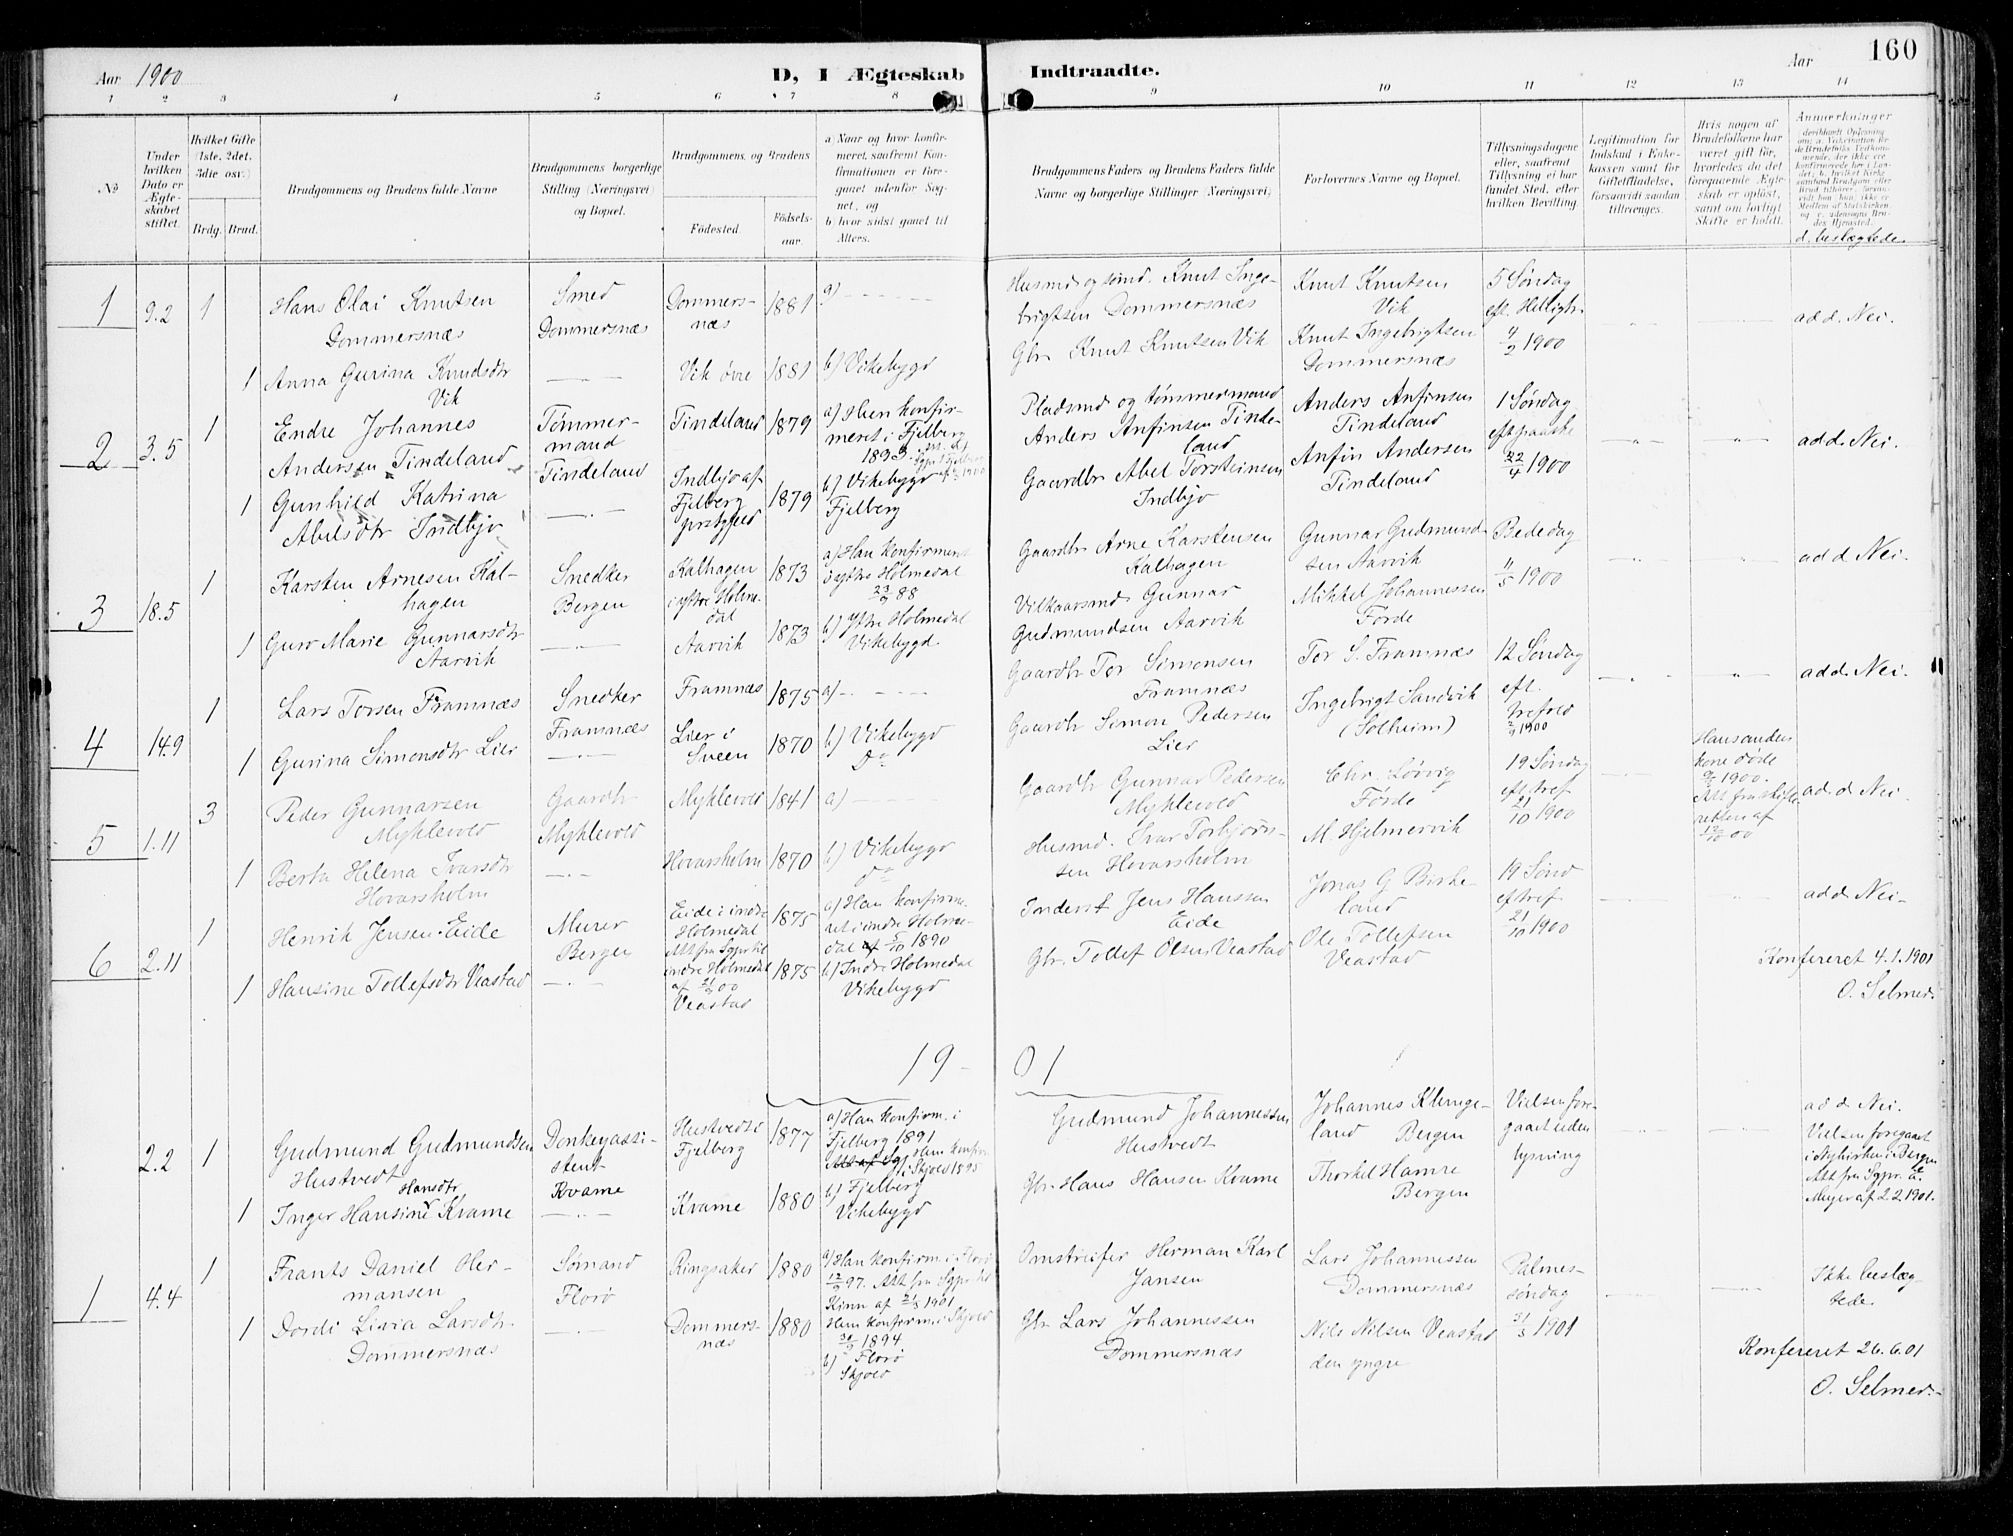 160
Aar 1900
D, I Ægteskab Indtraadte.
Aar
1 2 3 4 5 6 7 8 9 10 11 12 13 14
No
Under hvilken Dato er Ægteskabet stiftet.
Hvilket Gifte (1ste, 2det, 3die osv.)
Brdg. Brud.
Brudgommens og Brudens fulde Navne
Brudgommens borgerlige Stilling (Næringsvei) og Bopæl.
Brudgommens og Brudens
Fødested
Fødselsaar.
a) Naar og hvor konfirmeret, saafremt Konfirmationen er foregaaet udenfor Sognet, og
b) hvor sidst gaaet til Alters.
Brudgommens Faders og Brudens Faders fulde Navne og borgerlige Stillinger (Næringsvei)
Forlovernes Navne og Bopæl.
Tillysningsdagene eller, saafremt Tillysning ei har fundet Sted, efter hvilken Bevilling.
Legitimation for Indskud i Enkekassen samt for Giftetilladelse, forsaavidt saadan tiltrænges.
Hvis nogen af Brudefolkene har været gift før, hvorledes da det foregaaende Ægteskab er opløst, samt om lovligt Skifte er holdt.
Anmerkninger
d. beslægtede
1 9.2 1
Hans Olai Knutsen
Dommersnæs
Smed
Dommersnæs
Dommersnæs
1881
a) - - - -
Husmd og tømd. Knut Ingebrigtsen Dommersnæs
Knut Knutsen
Vik
5 Søndag
eft. Helligtr.
4/2 1900
ad d. Nei.
1
Anna Gurina Knudsdtr
Vik
Vik øvre
1881
b) Vikebygd
Gbr Knut Knutsen Vik
Knut Ingebrigtsen
Dommersnæs
2 3.5 1
Endre Johannes
Andersen Tindeland
Tømmermand
Tindeland
Tindeland
1879
a) Han konfirmeret i Fjelberg
1893
Pladsmd og tømmermand
Anders Anfinsen Tindeland
Anders Anfinsen
Tindeland
1 Søndag
eft paaske
22/4 1900
ad d. Nei.
1
Gunhild Katrina
Abelsdtr Indbjo
Indbjo af
Fjelberg
prstgjeld
1879
b) Vikebygd
Fjelberg
Gaardbr Abel Torsteinsen
Indbjo
Anfin Andersen
Tindeland
3 18.5 1
Karsten Arnesen Kalhagen
Snedker
Bergen
Kalhagen
i yttre Holmedal
1873
a) Han konfirmeret
i yttre Holmedal
23/9 88
Gaardbr Arne Karstensen
Kalhagen
Gunnar Gudmundsen Aarvik
Bededag
11/5 1900
ad d Nei.
1
Guro Marie Gunnarsdtr
Aarvik
Aarvik
1873
b) Yttre Holmedal
Vikebygd
Vilkaarsmd Gunnar
Gudmundsen Aarvik
Mikkel Johannessen
Førde
4 14.9 1
Lars Torsen Framnæs
Snedker
Framnæs
Framnæs
1875
a) - - - -
Gaardbr Tor Simonsen
Framnæs
Tor S. Framnæs
12 Søndag
eft.
trefold
2/9 1900
ad d. Nei.
1
Gurina Simonsdtr Lier
Lier i
Sveen
1870
b) Vikebygd
Do
Gaardbr Simon Pedersen
Lier
Ingebrigt Sandvik
(Solheim)
5 1.11 3
Peder Gunnarsen
Myklevold
Gaardbr
Myklevold
Myklevold
1841
a) - - - -
Gaardbr Gunnar Pedersen
Myklevold
Chr. Løvvig
Førde
19 Søndag
eft tref
21/10 1900
Hans anden
kone døde
1900.
Att fra skifteretten af
12/10 00
ad. d Nei
1
Berta Helena Ivarsdtr
Hovarsholm
Hovarsholm
1870
b) Vikebygd
Do
Husmd. Ivar Torbjørnsen Hovarsholm
M. Hjelmervik
6 2.11 1
Henrik Jensen Eide
Murer
Bergen
Eide i indre
Holmedal
Att fra Sgpr til
indre Holmedal
af 21/9 00
1875
a) Han konfirmeret i indre Holmedal 5/10 1890
Inderst Jens Hanssen
Eide
Jonas G. Birkeland
19 Sønd
eft tref
21/10 1900
ad d Nei.
1
Hansine Tollefsdtr Veastad
Veastad
1875
b) Indre Holmedal
Vikebygd
Gbr. Tollef Olsen Veastad
Ole Tollefsen
Veastad
Konfereret 4.1.1901
O. Selmer.
19-01
2.2 1
Gudmund Gudmundsen
Hustvedt
Donkeyassistent
Kvame
Hustvedt i
Fjelberg
1877
a) Han konfirm. i
Fjelberg 1891
Hun konf.
i Skjold 1895
Gudmund Johannessen
Hustvedt
Johannes Klungeland Bergen
Vielsen foregaaet uden
lysning
ad d. Nei.
Vielsen foregaaet
i Nykirken i Bergen
Att fra Sgpr.
Meyer af 2.2.1901.
1
Inger Hansine Hansdtr Kvame
Kvame
1880
b) Fjelberg
Vikebygd
Gbr. Hans Hansen Kvame
Thorkel Hamre
Bergen
1 4.4 1
Frants Daniel Hermansen
Sømand
Florø
Ringsaker
1880
a) Han konfirm. i Florø
12/9 97. Att fra Sgpr til
Kinn af 21/3 1901
Omstreifer Herman Karl
Jansen
Lars Johannessen
Dommersnæs
Palmesøndag
31/3 1901
Ikke beslægtede.
1
Dordi Livia Larsdtr.
Dommersnæs
Dommersnæs
1880
Hun konfirm. i Skjold
30/9 1894
b) Florø
Skjold
Gbr Lars Johannessen
Dommersnæs
Nils Nilsen Veastad
den yngre
Konfereret 26.6.01
O. Selmer.